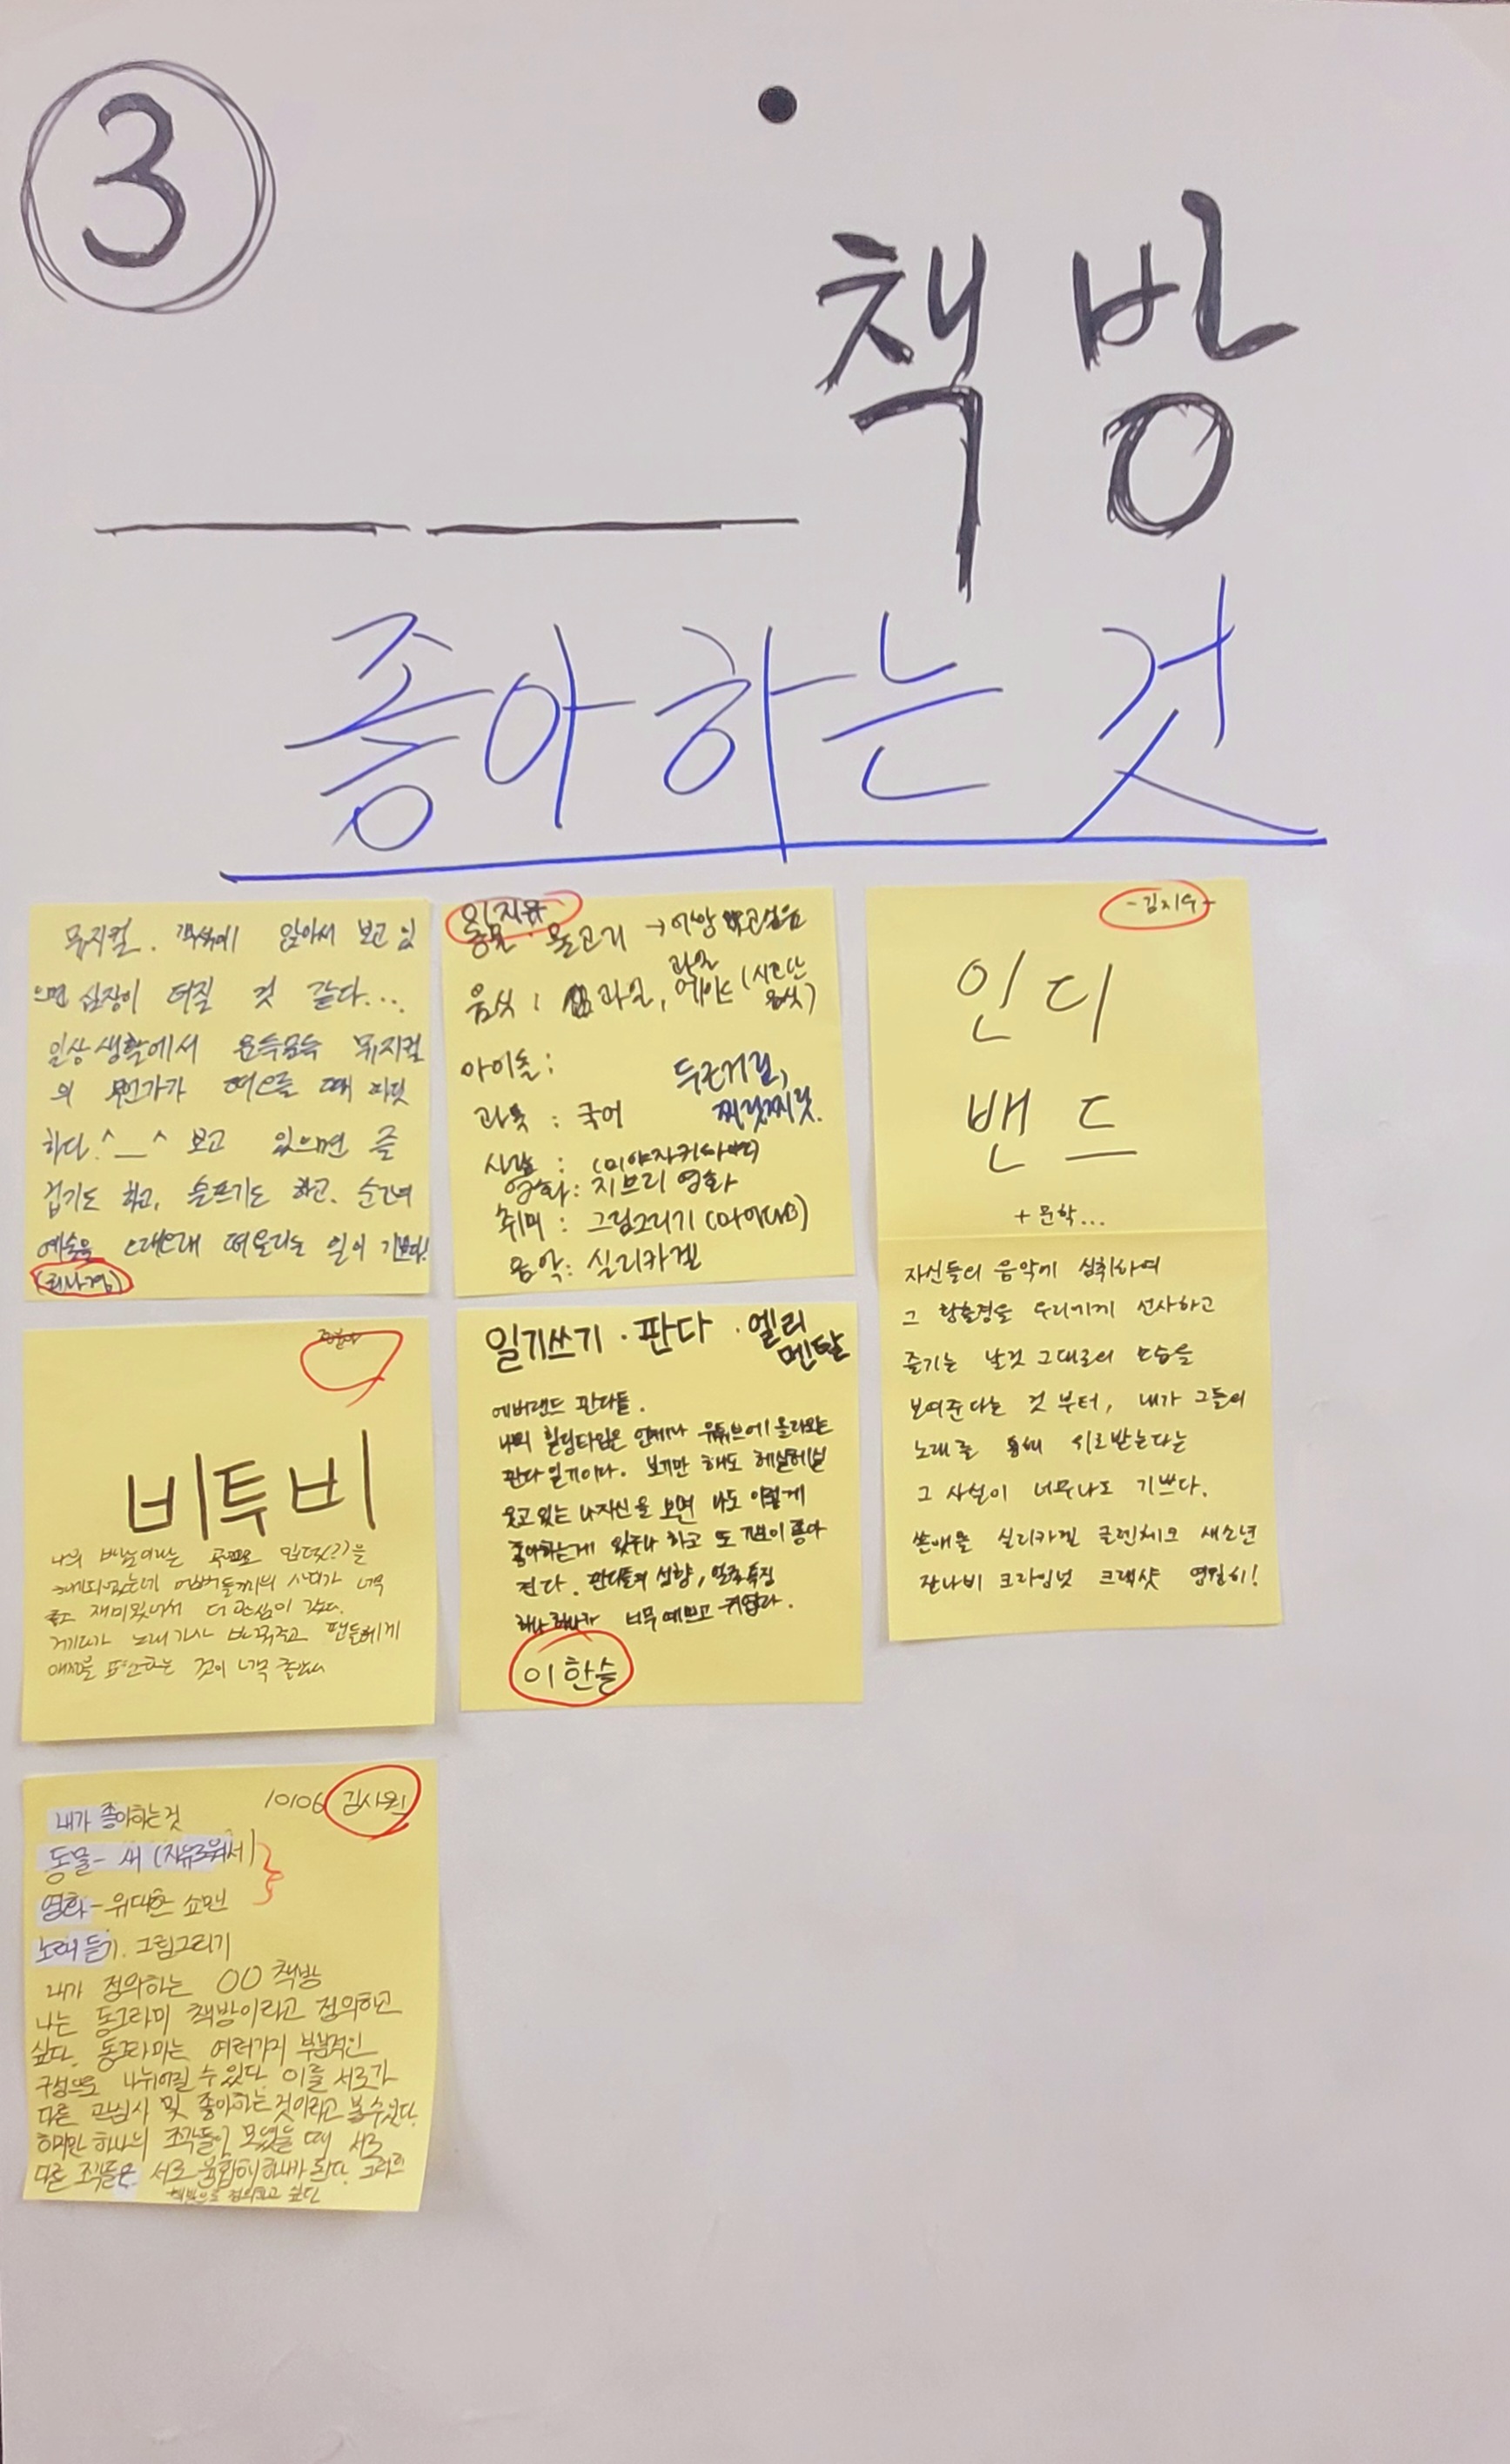 3
책방
좋아하는 것
뮤지컬. 객석에 앉아서 보고 있
으면 심장이 터질 것 같다...
일상생활에서 문득문득 뮤지컬
의 무언가가 떠오를 때
하다.^__^ 보고 있으면 즐
겁기도 하고, 슬프기도 하고. 순간의
예술을 오래오래 떠올리는 일이 기쁘다!
동물 · 물고기 →
음식 : 과일,
과일
(시원한
음식)
아이돌:
두근거림,
찌릿찌릿.
과목 : 국어
사람 :
영화: 지브리 영화
취미 : 그림그리기
음악: 실리카겔
-김지우-
인디
밴드
+ 문학...
자신들의 음악에 심취하여
그 황홀경을 우리에게 선사하고
즐기는 날것 그대로의 모습을
보여준다는 것 부터, 내가 그들의
노래를 통해 위로받는다는
그 사실이 너무나도 기쁘다.
쏜애플 실리카겔 글렌체크 새소년
잔나비 크라잉넛 크랙샷 영원히!
비투비
나의
재미있어서 더 관심이 갔다.
게다가 노래가사 팬들에게
표현하는 것이 너무
일기쓰기 · 판다 · 엘리
멘탈
에버랜드 판다들.
나의 힐링타임은 언제나 유튜브에 올라오는
판다일기이다. 보기만 해도 헤실헤실
웃고 있는 나자신을 보면 나도 이렇게
좋아하는게 있구나 하고 또 기분이 좋아
진다. 판다들의 성향,
하나하나가 너무 예쁘고 귀엽다.
이한슬
10106
내가 좋아하는 것
동물- 새 (자유로워서)
영화- 위대한 쇼맨
노래 듣기. 그림그리기
내가 정의하는 OO 책방
나는 동그라미 책방이라고 정의하고
싶다. 동그라미는 여러가지 부분적인
구성으로 나뉘어질 수 있다 이를 서로가
다른 관심사 및 좋아하는 것이라고 볼수있다.
하지만 하나의 조각들이 모였을 때 서로
다른 조각들은 서로 하나가 된다.
책방으로 정의하고 싶다